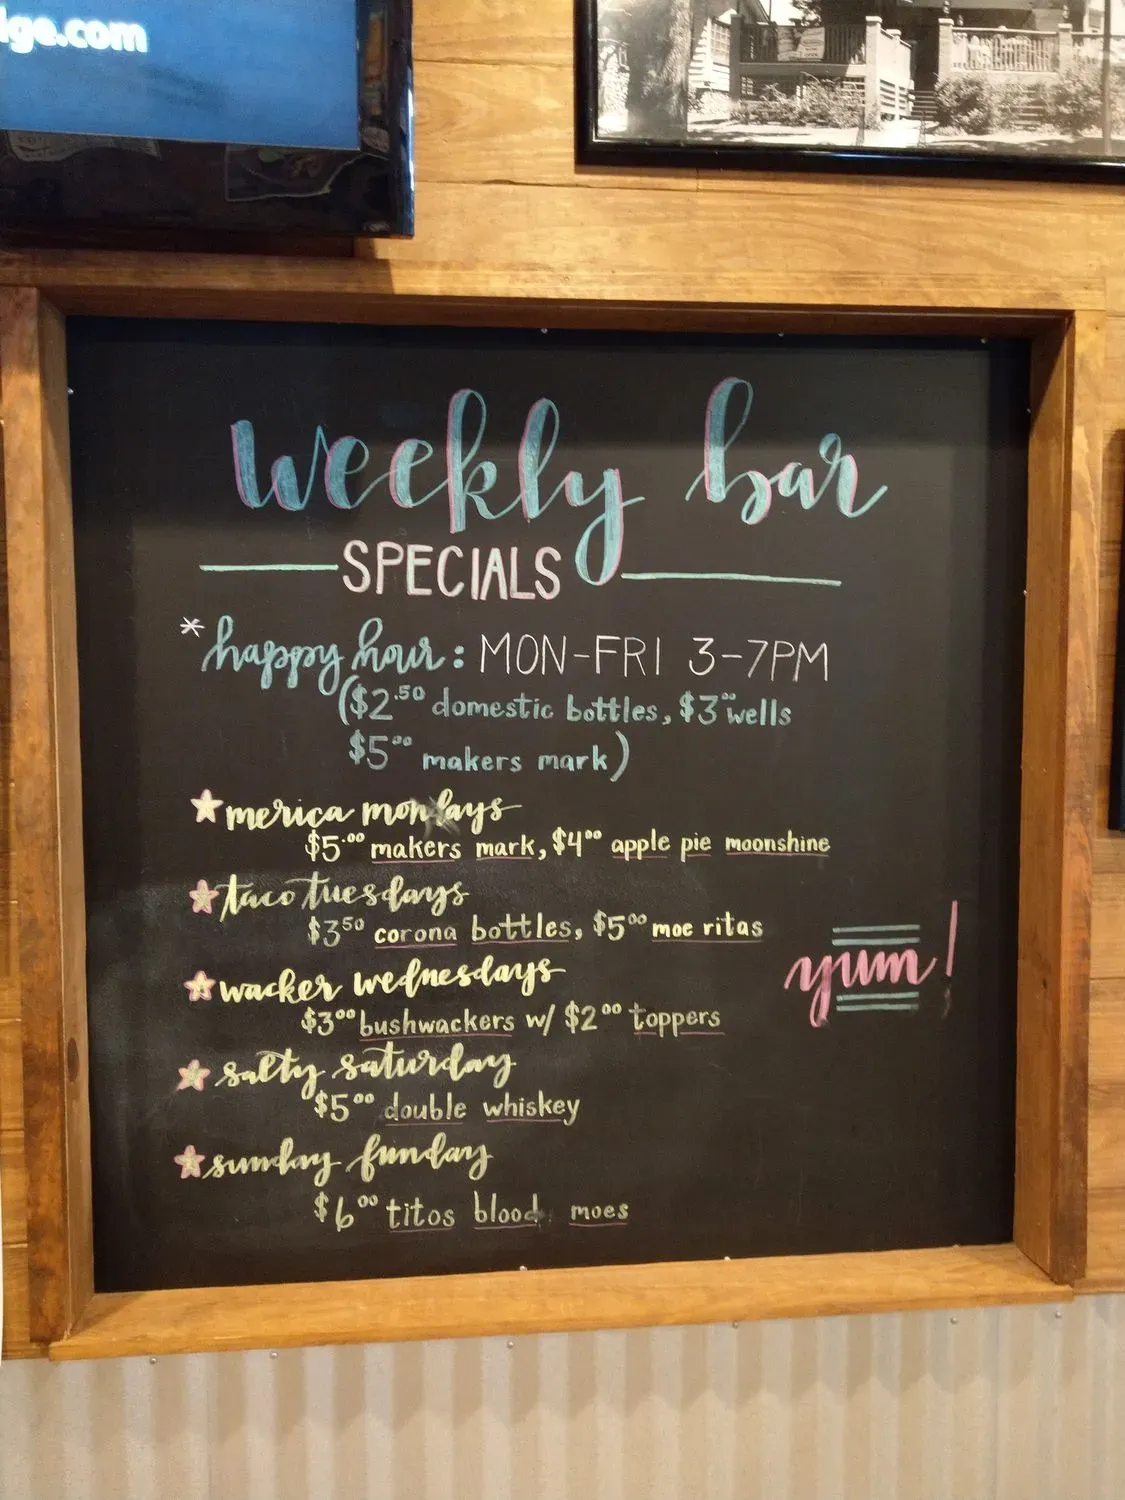 ige.com
weekly bar
SPECIALS
*happy hour: MON-FRI 3-7PM
($2.50 domestic bottles, $3.00 wells
$5.00 makers mark)
merica mondays
$5.00 makers mark, $4.00 apple pie moonshine
taco tuesdays
$3.50 corona bottles, $5.00 moe ritas
wacker wednesdays
$3.00 bushwackers w/ $2.00 toppers
yum!
salty saturday
$5.00 double whiskey
sunday funday
$6.00 titos blood moes